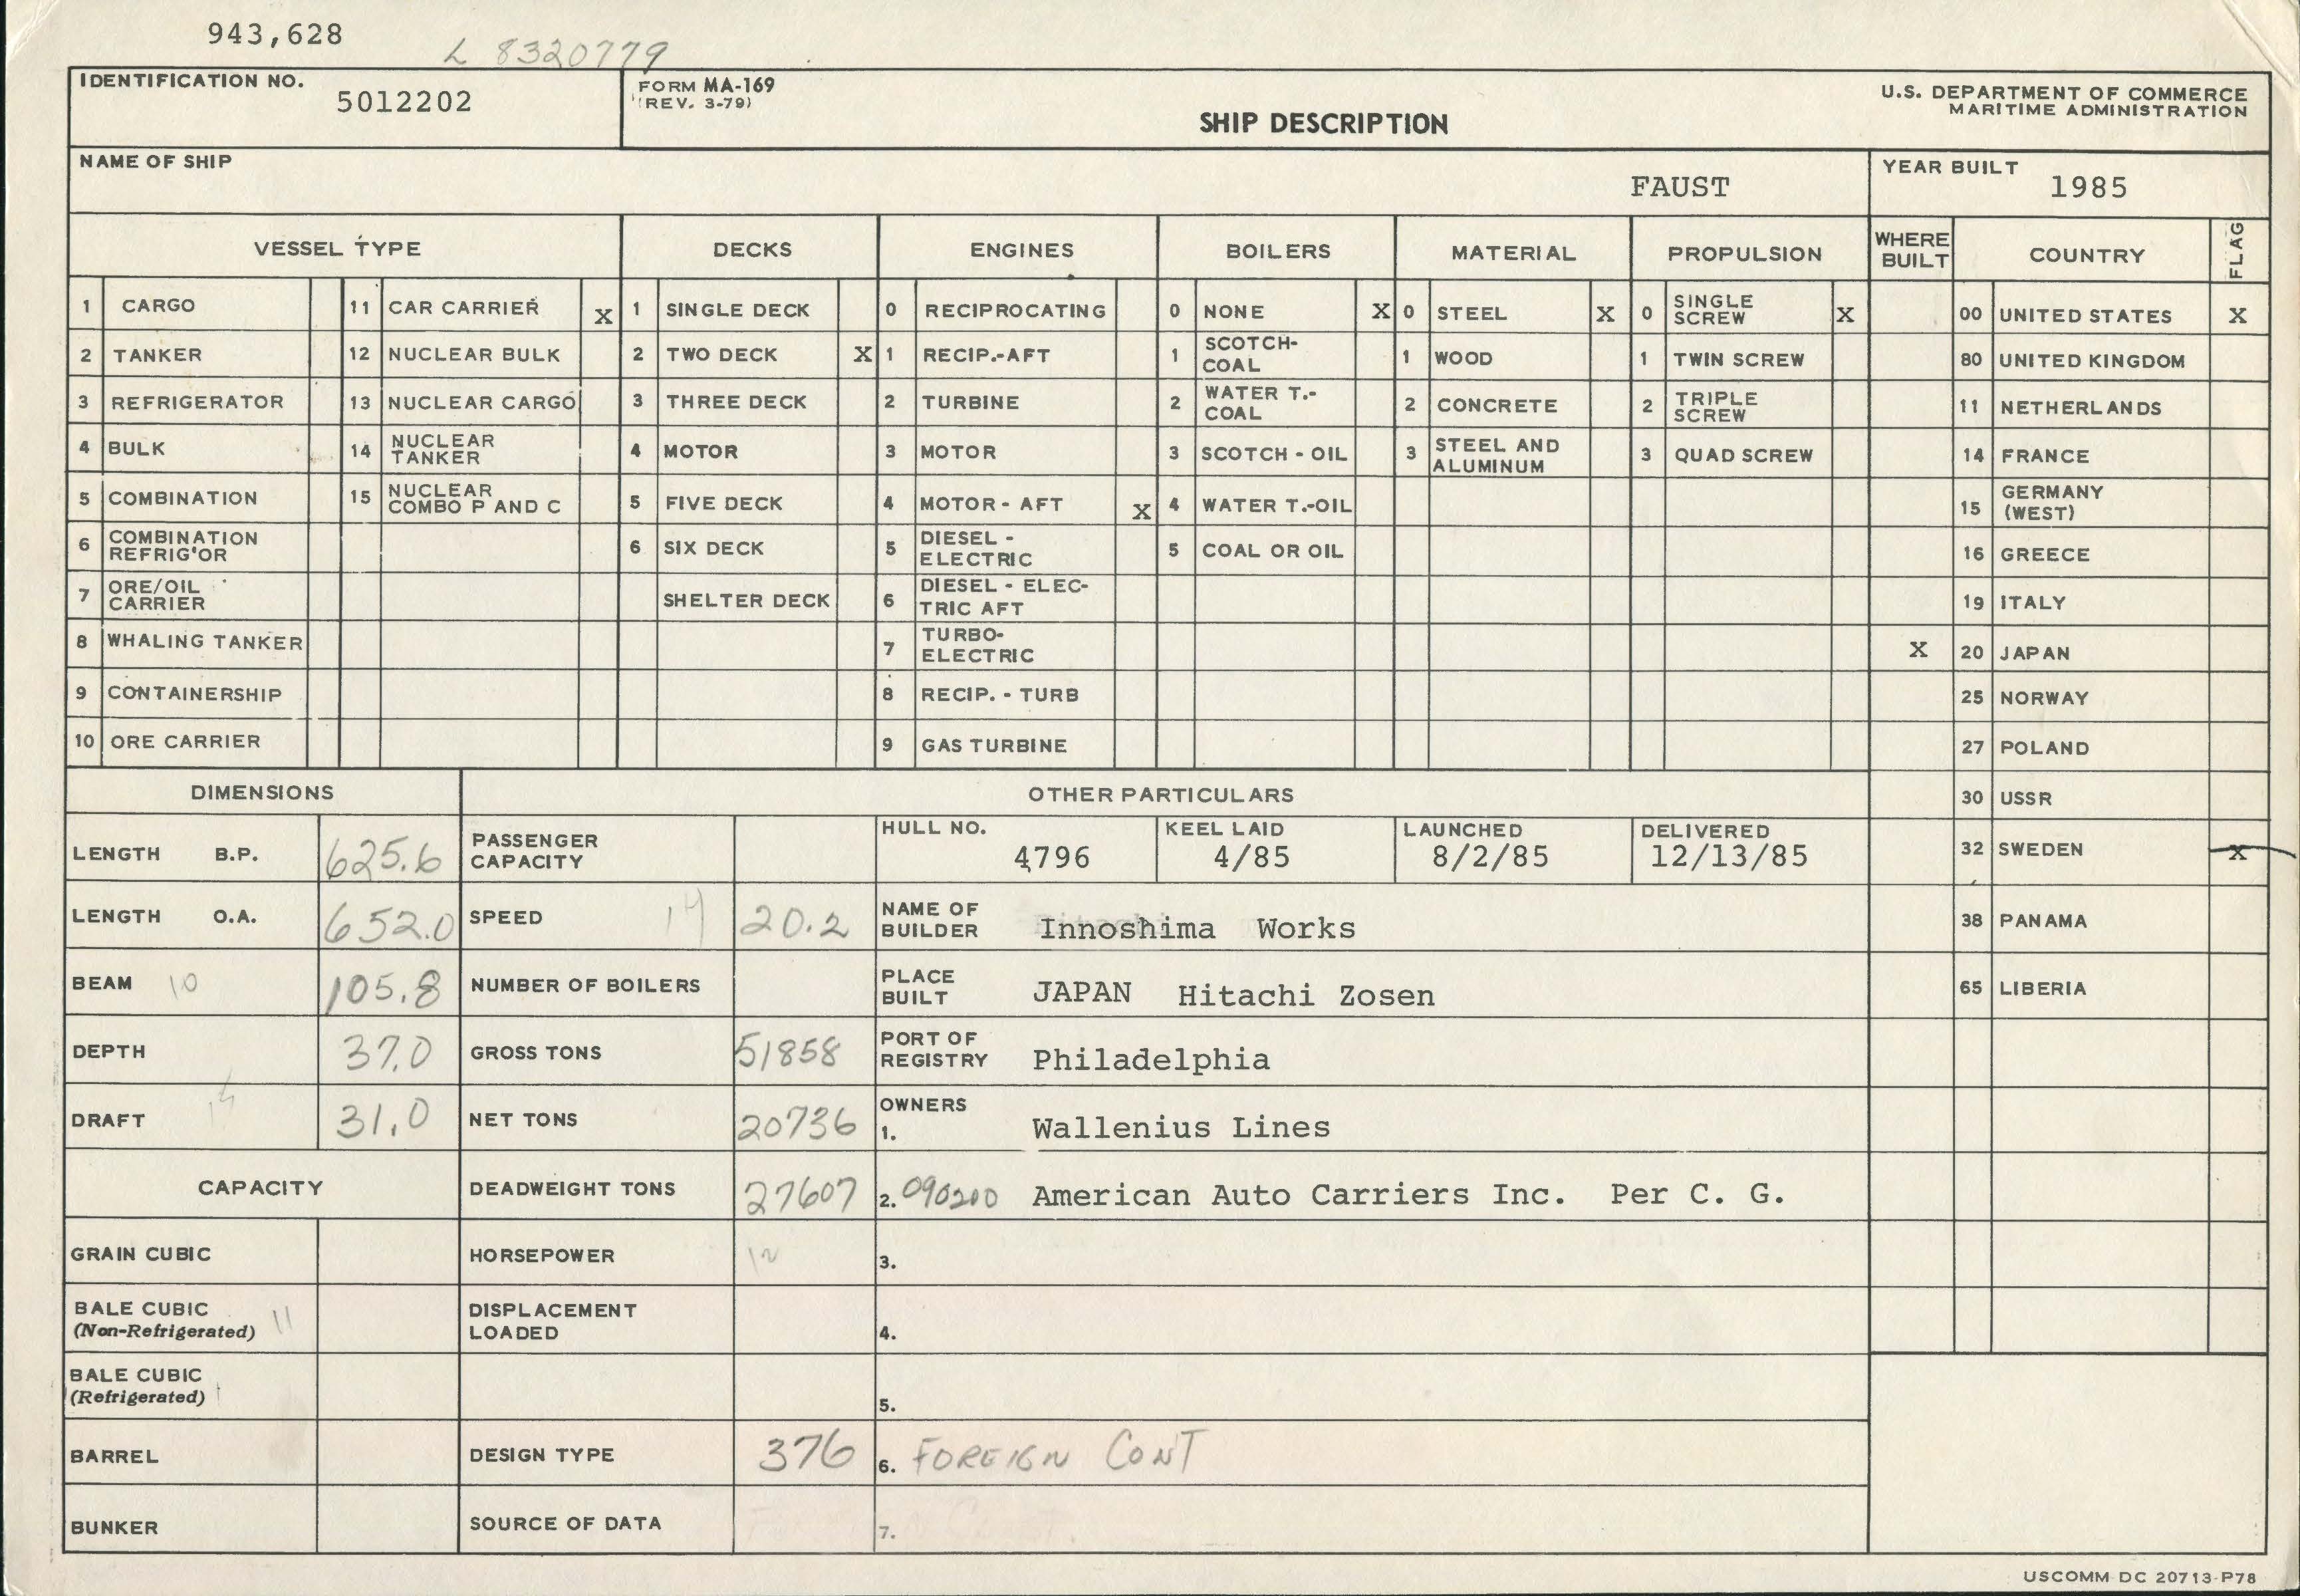 943,628
L 8320779
IDENTIFICATION NO.
5012202
FORM MA-169
(REV. 3-79)
SHIP DESCRIPTION
U.S. DEPARTMENT OF COMMERCE
MARITIME ADMINISTRATION
NAME OF SHIP
FAUST
YEAR BUILT
1985
VESSEL TYPE DECKS ENGINES BOILERS MATERIAL PROPULSION WHERE BUILT COUNTRY FLAG
1 CARGO 11 CAR CARRIER X 1 SINGLE DECK 0 RECIPROCATING 0 NONE X 0 STEEL X 0 SINGLE SCREW X 00 UNITED STATES X
2 TANKER 12 NUCLEAR BULK 2 TWO DECK X 1 RECIP.-AFT 1 SCOTCH-COAL 1 WOOD 1 TWIN SCREW 80 UNITED KINGDOM
3 REFRIGERATOR 13 NUCLEAR CARGO 3 THREE DECK 2 TURBINE 2 WATER T.-COAL 2 CONCRETE 2 TRIPLE SCREW 11 NETHERLANDS
4 BULK 14 NUCLEAR TANKER 4 MOTOR 3 MOTOR 3 SCOTCH - OIL 3 STEEL AND ALUMINUM 3 QUAD SCREW 14 FRANCE
5 COMBINATION 15 NUCLEAR COMBO P AND C 5 FIVE DECK 4 MOTOR - AFT X 4 WATER T.-OIL 15 GERMANY (WEST)
6 COMBINATION REFRIG'OR 6 SIX DECK 5 DIESEL - ELECTRIC 5 COAL OR OIL 16 GREECE
7 ORE/OIL CARRIER SHELTER DECK 6 DIESEL - ELECTRIC AFT 19 ITALY
8 WHALING TANKER 7 TURBO-ELECTRIC X 20 JAPAN
9 CONTAINERSHIP 8 RECIP. - TURB 25 NORWAY
10 ORE CARRIER 9 GAS TURBINE 27 POLAND
DIMENSIONS OTHER PARTICULARS 30 USSR
LENGTH B.P. 625.6 PASSENGER CAPACITY HULL NO. 4796 KEEL LAID 4/85 LAUNCHED 8/2/85 DELIVERED 12/13/85 32 SWEDEN X
LENGTH O.A. 652.0 SPEED 14 20.2 NAME OF BUILDER Innoshima Works 38 PANAMA
BEAM 10 105.8 NUMBER OF BOILERS PLACE BUILT JAPAN Hitachi Zosen 65 LIBERIA
DEPTH 37.0 GROSS TONS 51858 PORT OF REGISTRY Philadelphia
DRAFT 31.0 NET TONS 20736 OWNERS 1. Wallenius Lines
CAPACITY DEADWEIGHT TONS 27607 2. 090200 American Auto Carriers Inc. Per C. G.
GRAIN CUBIC HORSEPOWER 12 3.
BALE CUBIC (Non-Refrigerated) 11 DISPLACEMENT LOADED 4.
BALE CUBIC (Refrigerated) 5.
BARREL DESIGN TYPE 376 6. FOREIGN CONT
BUNKER SOURCE OF DATA 7.
USCOMM DC 20713-P78